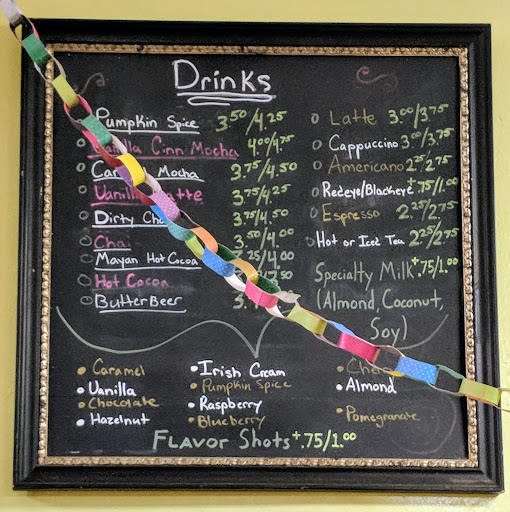 Drinks
Pumpkin Spice 3.50/4.25
Cinn Mocha 4.00/4.75
Mocha 3.75/4.50
Vanilla 3.75/4.25
Dirty 3.75/4.50
Chai 3.50/4.00
Mayan Hot Cocoa
Hot Cocoa
Butter Beer
Latte 3.00/3.75
Cappuccino 3.00/3.75
Americano 2.25/2.75
Redeye/Blackeye +.75/1.00
Espresso 2.25/2.75
Hot or Iced Tea 2.25/2.75
Specialty Milk +.75/1.00
(Almond, Coconut,
Soy)
Caramel
Vanilla
Chocolate
Hazelnut
Irish Cream
Pumpkin Spice
Raspberry
Blueberry
Almond
Pomegranate
Flavor Shots +.75/1.00